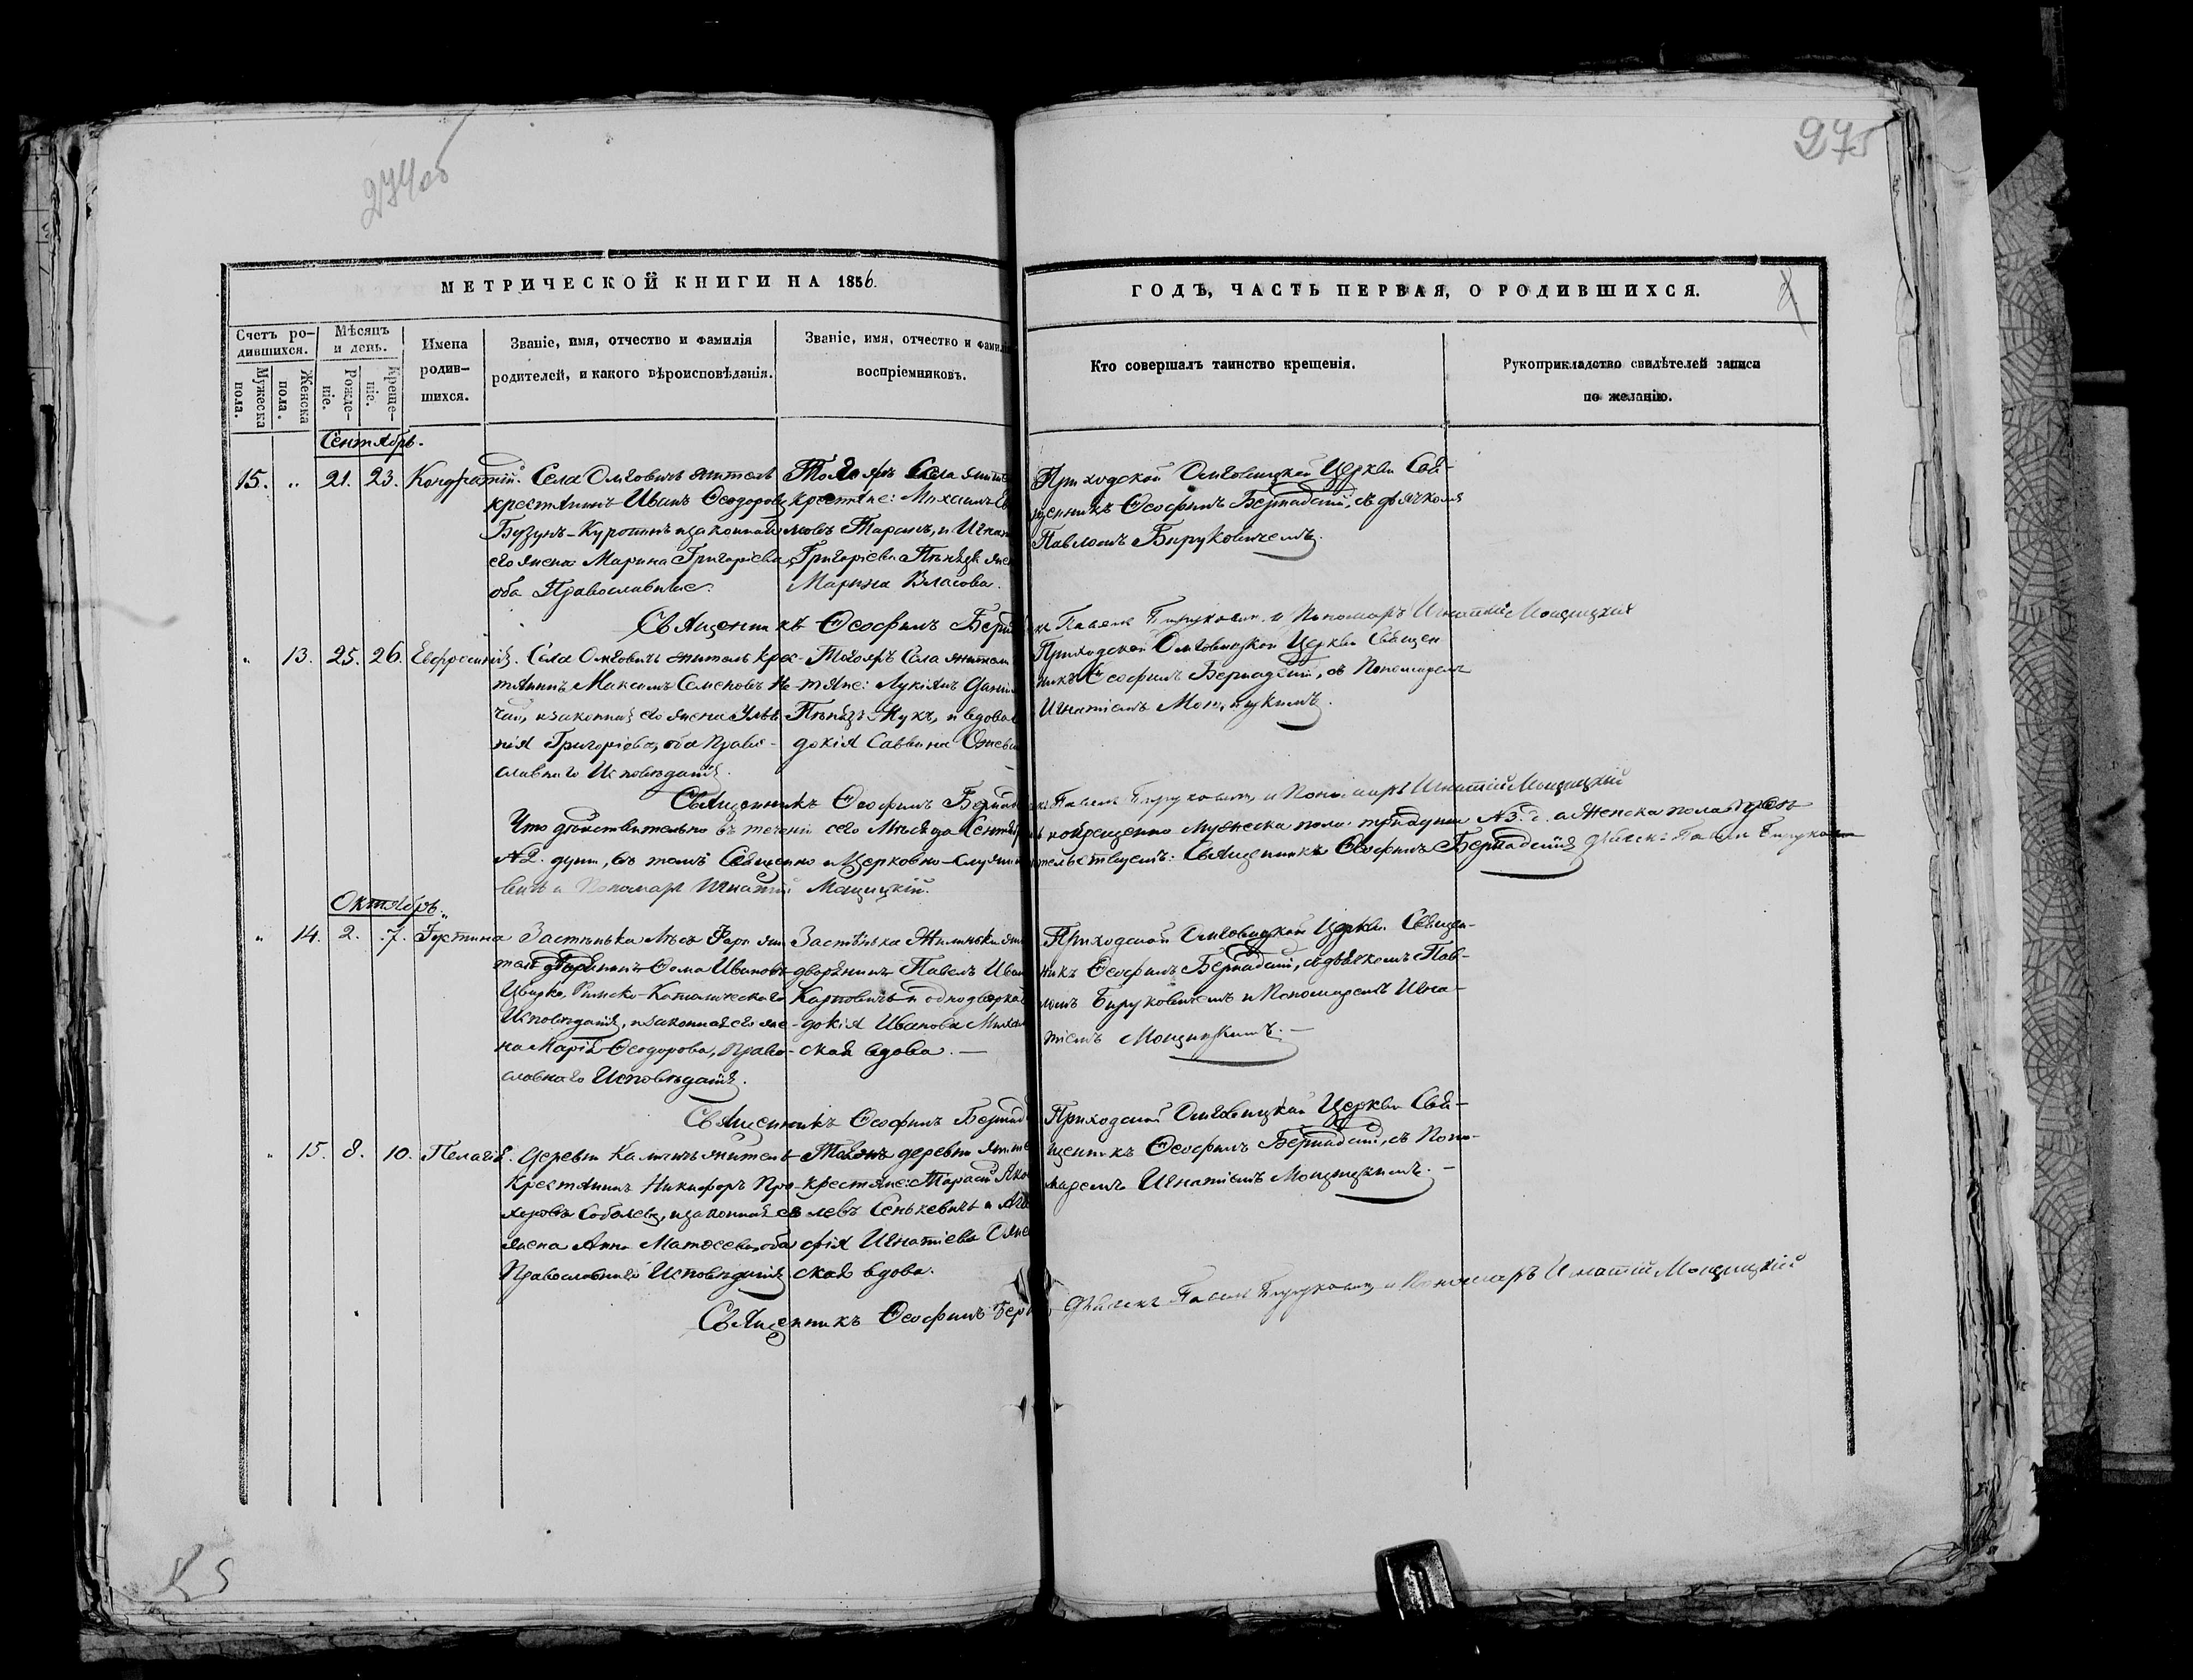 274об
275
МЕТРИЧЕСКОЙ КНИГИ НА 1856.
ГОДЪ, ЧАСТЬ ПЕРВАЯ, О РОДИВШИХСЯ.
Счетъ ро-
дившихся.
Мужеска
пола.
Женска
пола.
Мѣсяцъ
и день.
Рожде-
ніе.
Креще-
ніе.
Имена
родив-
шихся.
Званіе, имя, отчество и фамилія
родителей, и какого вѣроисповѣданія.
Званіе, имя, отчество и фамилі
воспріемниковъ.
Кто совершалъ таинство крещенія.
Рукоприкладство свидѣтелей записи
по желанію.
Сентябрь.
15. „ 21. 23. Кондратій.
Села Омговичъ житель
крестьянинъ Иванъ Ѳеодоровъ
Бузунъ-Куротникъ и законная
его жена Марина Григоріева,
оба Православные.
Тогожъ Села жители
крестьяне: Михаилъ
Тарасъ, и
Григоріева жен
Марина Власова.
Приходской Омговицкой Церкви Свя-
щенникъ Ѳеофилъ Бернадскій, съ дьячкомъ
Павломъ Бируковичемъ.
Священникъ Ѳеофилъ Берна
Павелъ Бируковичъ и Пономарь Игнатій Мощицкій
„ 13. 25. 26. Евфросинія.
Села Омговичъ житель крес-
тьянинъ Максимъ Семеновъ Не-
чай, и законная его жена Улья-
нія Григоріева, оба Право-
славнаго Исповѣданія.
Тогожъ Села жители
тьяне: Лукіянъ Дани
Жукъ, и вдова
докія Саввина
Приходской Омговицкой Церкви Священ
никъ Ѳеофилъ Бернадскій, съ Пономаремъ
Игнатіемъ Мощицкимъ.
Священникъ Ѳеофилъ Бернад
Павелъ Бируковичъ и Пономарь Игнатій Мощицкій
Что дѣйствительно въ теченіи сего Мѣсяца Сентября
окрещенно Мужеска пола: три души №3. д. а Женска пола
№2. душ, въ томъ Священно и Церковно-служи
тельствуемъ: Священникъ Ѳеофилъ Бернадскій Дьячекъ Павелъ Бируко
вичъ и Пономарь Игнатій Мощицкій.
Октябрь.
„ 14. 2. 7. Іустина
Застѣнка жи
тель дворянинъ Ѳома Ивановъ
Цвирко, Римско-Католическаго
Исповѣданія, и законная его же-
на Марія Ѳеодорова, Право-
славнаго Исповѣданія.
Застѣнка
дворянинъ Павелъ Иван
Карповичъ и однодворка
докія Иванова
ская вдова.
Приходской Омговицкой Церкви Священ-
никъ Ѳеофилъ Бернадскій, съ дьячкомъ Пав-
ломъ Бируковичемъ и Пономаремъ Игна-
тіемъ Мощицкимъ.
Священникъ Ѳеофилъ Бернад
„ 15. 8. 10. Пелагія.
Деревни житель
Крестьянинъ Никифоръ Про-
хоровъ Соболевъ, и законная его
жена Анна Матѳеева, оба
Православнаго Исповѣданія
деревни жите
крестьяне: Тарасій Яко
левъ Сенькевичъ и Ага
фія Игнатіева
ская вдова.
Приходской Омговицкой Церкви Свя-
щенникъ Ѳеофилъ Бернадскій, съ Поно-
маремъ Игнатіемъ Мощицкимъ.
Священникъ Ѳеофилъ Берн
Дьячекъ Павелъ Бируковичъ и Пономарь Игнатій Мощицкій